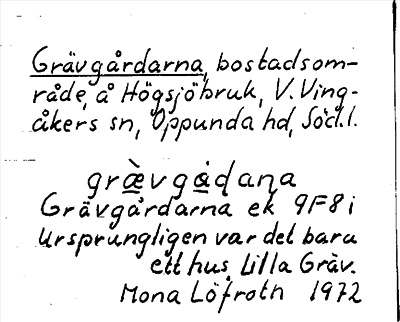 Grävgårdarna, bostadsom-
råde, å Högsjöbruk, V. Ving-
åkers sn, Oppunda hd, Söd.l.
græ̀vgɑ̊ɖaɳa
Grävgårdarna ek 9F8i
Ursprungligen var det bara
ett hus, Lilla Gräv.
Mona Löfroth 1972